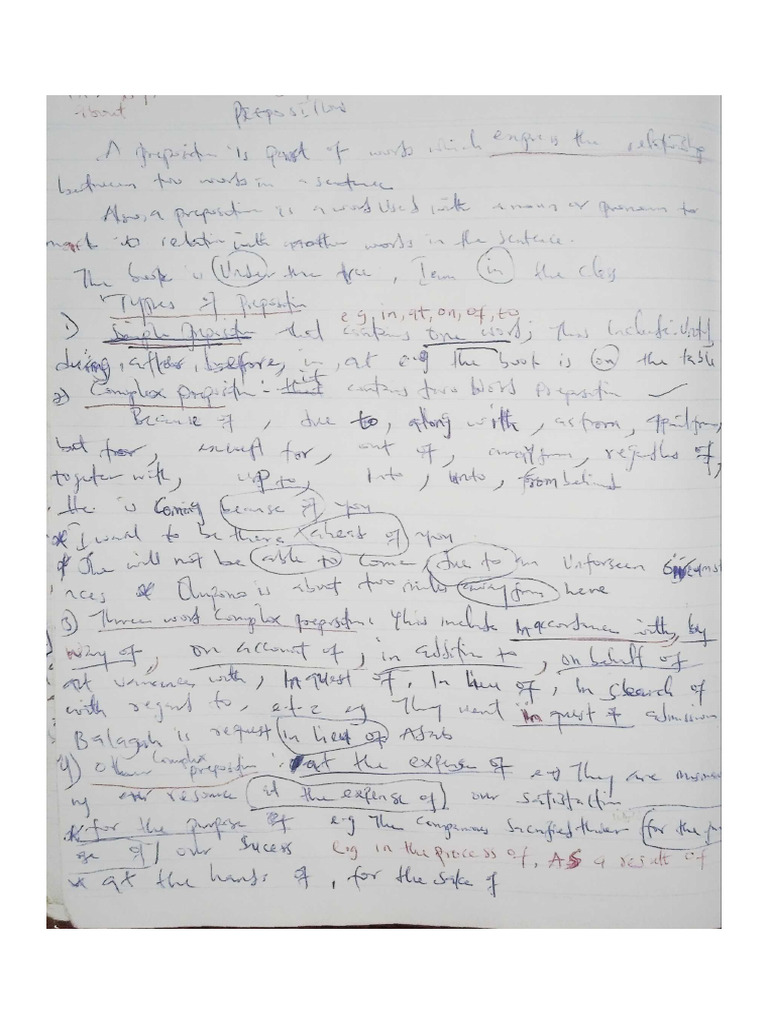 about Preposition
A preposition is part of words which express the relationship
between two words in a sentence
Also, a preposition is a word used with a noun or pronoun to
mark its relation with another words in the sentence.
The book is Under the tree, I am in the class
Types of preposition
e.g, in, at, on, of, to
1) Simple preposition that contains one word; This include
during, after, before, in, at e.g the book is on the table
2) Complex preposition :- it contains two word preposition
Because of, due to, along with, as from, apart from,
but for, except for, out of, away from, regardless of,
together with, up to, into, unto, from behind
He is coming because of you
* I want to be there ahead of you
* She will not be able to come due to an unforseen
nces * is about two miles away from here
3) Three word complex preposition: This include In accordance with, by
way of, on account of, in addition to, on behalf of
at variance with, In quest of, In lieu of, In search of
with regard to, e.t.c eg They went in quest of admission
is request in lieu of
4) Other complex preposition : at the expense of e.g They are
ng our resource at the expense of our satisfaction
* for the purpose of e.g The companions sacrificed their for the
se of our sucess e.g in the process of, As a result of
* at the hands of, for the sake of